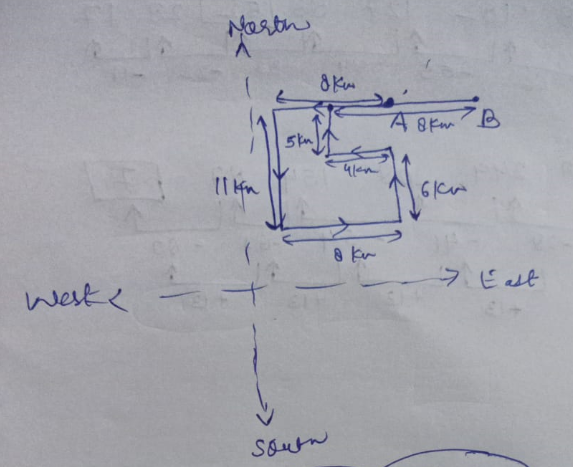 North
8km
A 8km B
5km
4km
11km
6km
8km
West
East
South